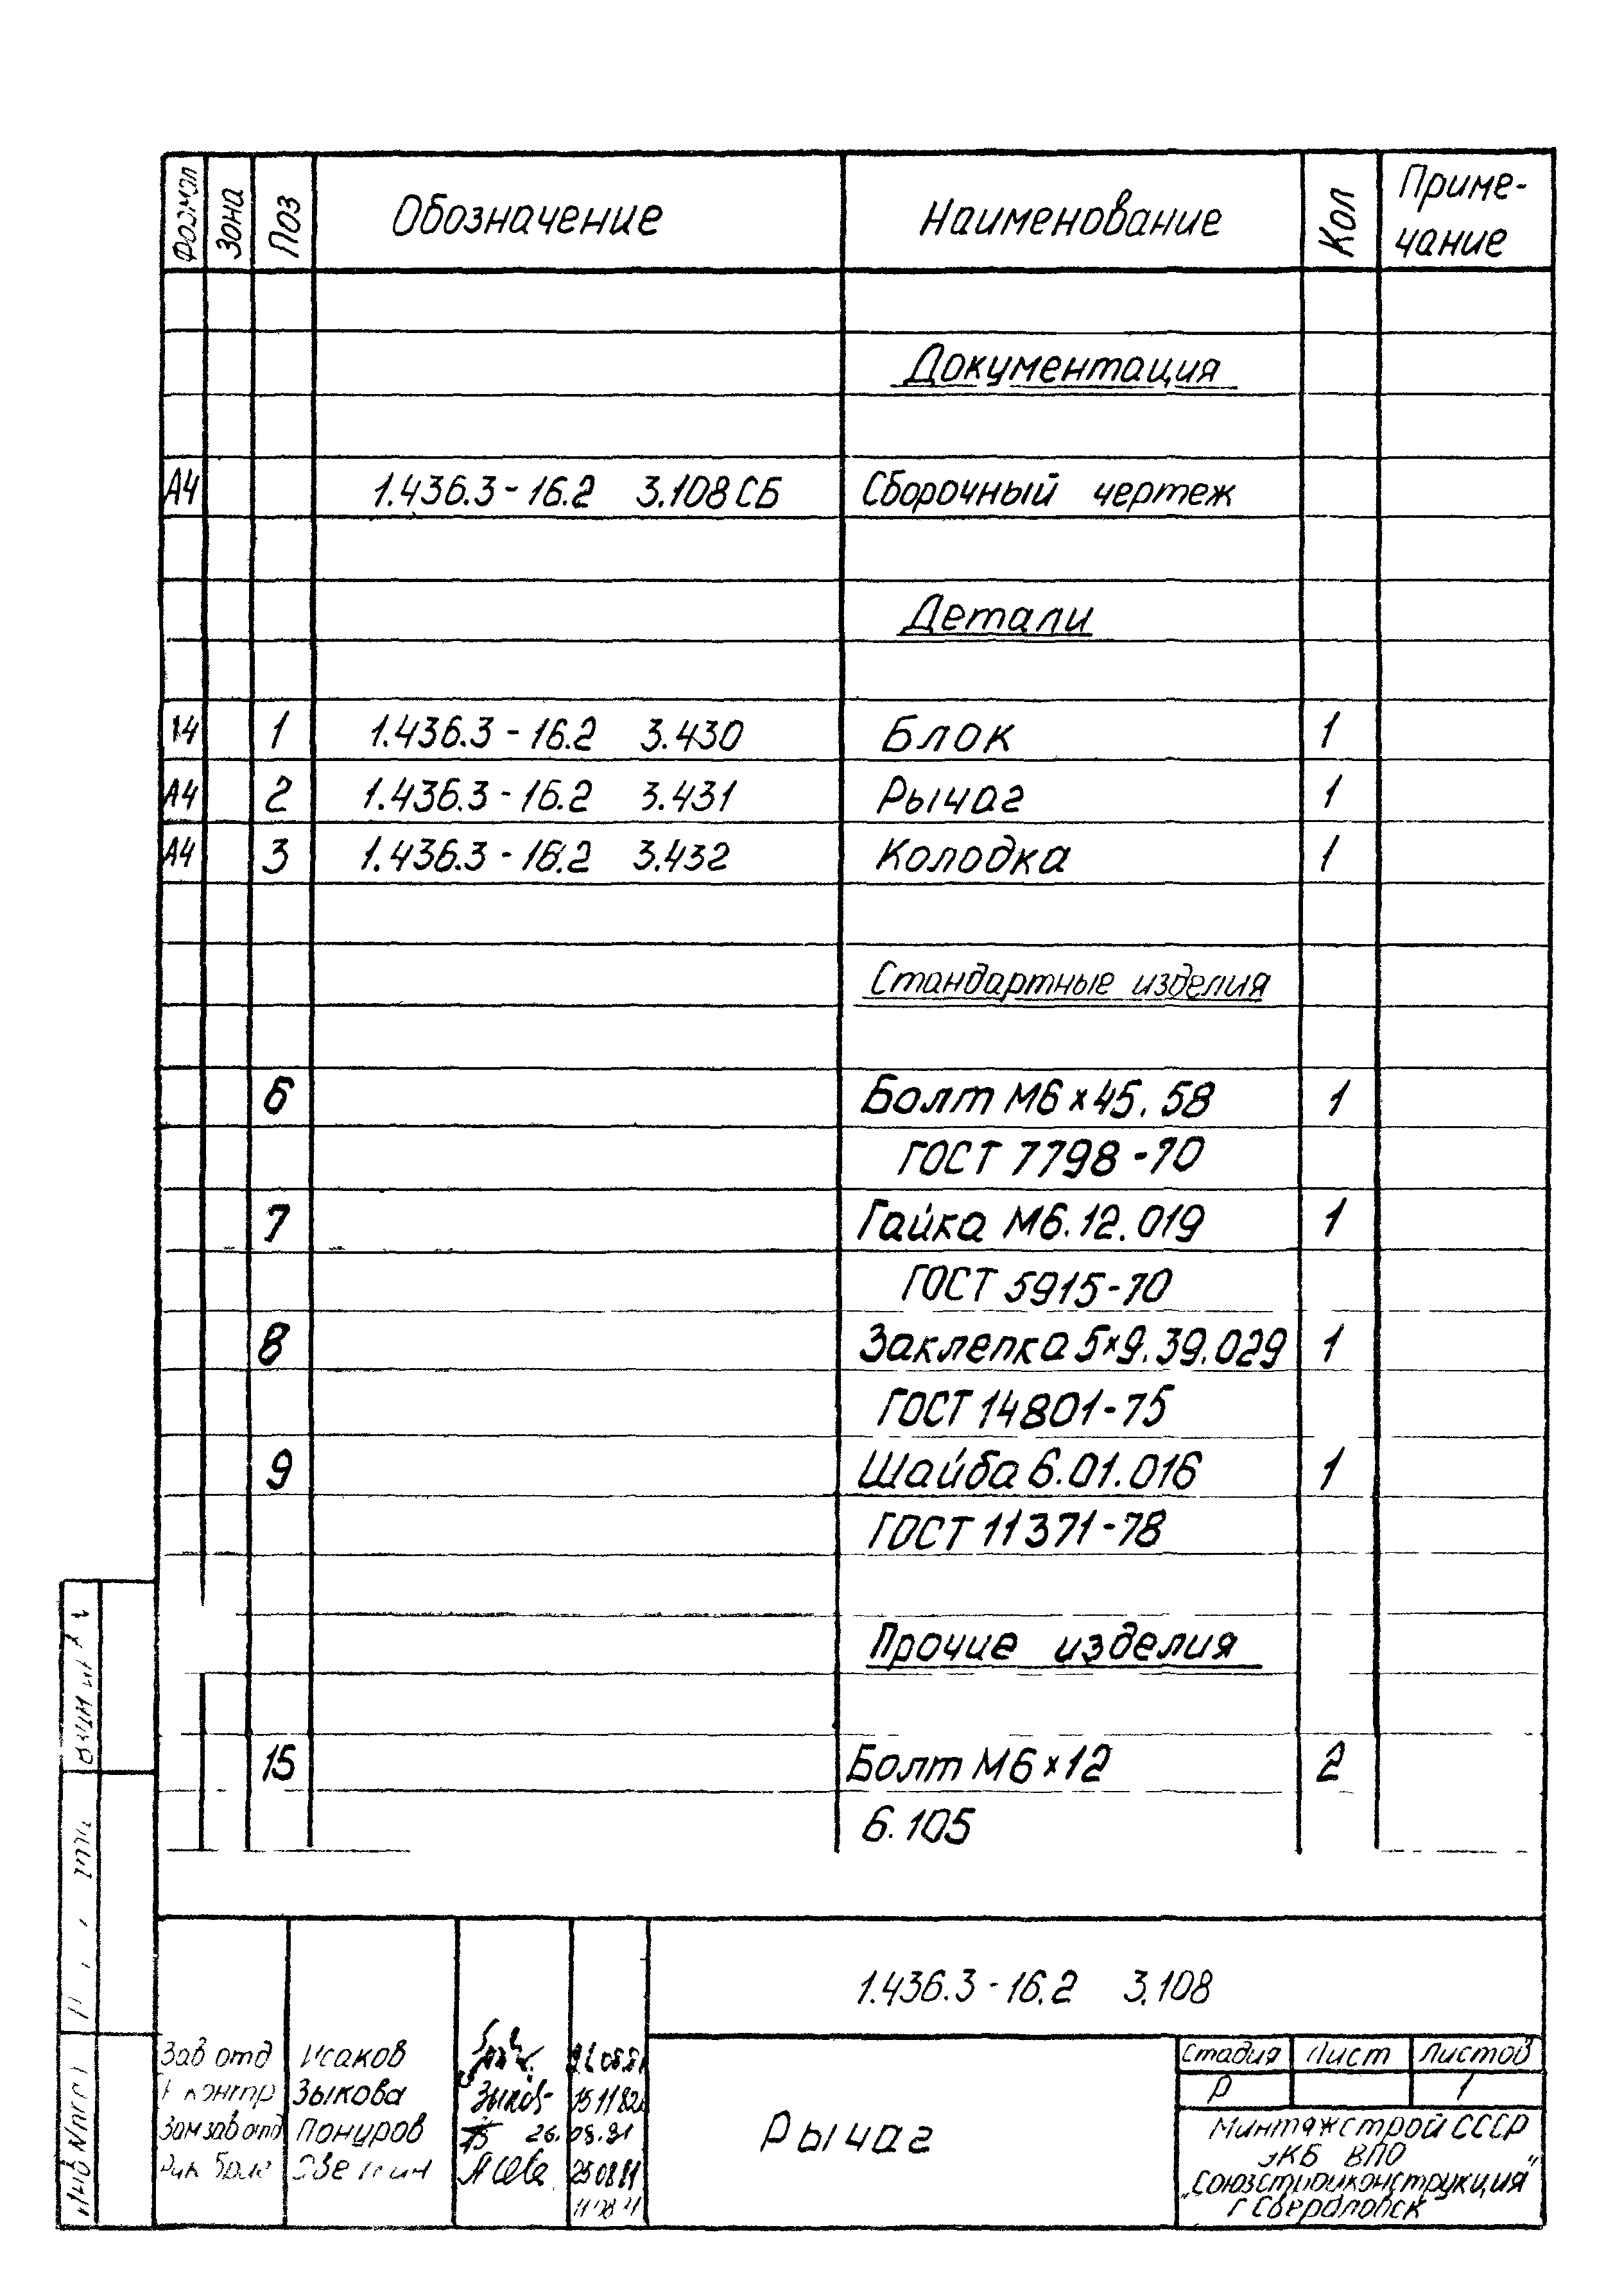 Формат Зона Поз Обозначение Наименование Кол Приме-
чание
Документация
А4 1.436.3-16.2 3.108СБ Сборочный чертеж
Детали
А4 1 1.436.3-16.2 3.430 Блок 1
А4 2 1.436.3-16.2 3.431 Рычаг 1
А4 3 1.436.3-16.2 3.432 Колодка 1
Стандартные изделия
6 Болт М6×45.58 1
ГОСТ 7798-70
7 Гайка М6.12.019 1
ГОСТ 5915-70
8 Заклепка 5×9.39.029 1
ГОСТ 14801-75
9 Шайба 6.01.016 1
ГОСТ 11371-78
Прочие изделия
15 Болт М6×12 2
6.105
1.436.3-16.2 3.108
Зав отд Исаков
контр Зыкова 15 11 82
Зам зав отд Понуров 26.08.81
25 08 81
Рычаг
Стадия Лист Листов
Р 1
Минтяжстрой СССР
ЭКБ ВПО
„Союзстройконструкция"
г Свердловск